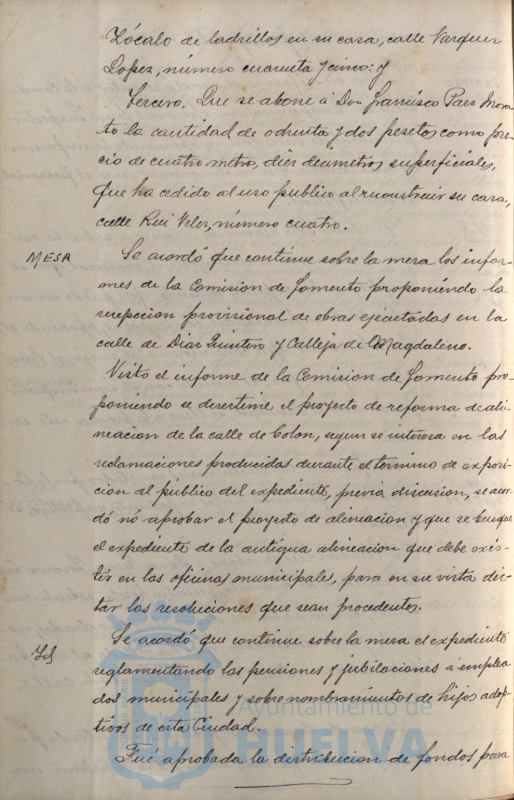 Zócalo de ladrillos en su casa, calle Vazquez
Lopez, número cuarenta y cinco: y
Tercero. Que se abone á Don Francisco Paez Mora
to la cantidad de ochenta y dos pesetas como pre
cio de cuatro metros, diez decimetros superficiales,
que ha cedido al uso publico al reconstruir su casa,
calle Rui Velez, número cuatro.
MESA
Se acordó que continue sobre la mesa los infor-
mes de la Comision de Fomento proponiendo la
recepcion provisional de obras ejecutadas en la
calle de Diaz Quintero y Calleja de Magdaleno.
Visto el informe de la Comision de Fomento pro-
poniendo se desestime el proyecto de reforma de ali-
neacion de la calle de Colon, segun se interesa en las
reclamaciones producidas durante el termino de exposi-
cion al público del expediente, previa discusion, se acor-
dó nó aprobar el proyecto de alineacion y que se busque
el expediente de la antigua alineacion que debe exis-
tir en las oficinas municipales, para en su virtud dic-
tar las resoluciones que sean procedentes.
Id
Se acordó que continue sobre la mesa el expediente
reglamentando las pensiones y jubilaciones á emplea
dos municipales y sobre nombramientos de hijos adop-
tivos de esta Ciudad.
Fué aprobada la distribucion de fondos para
Ayuntamiento de
HUELVA